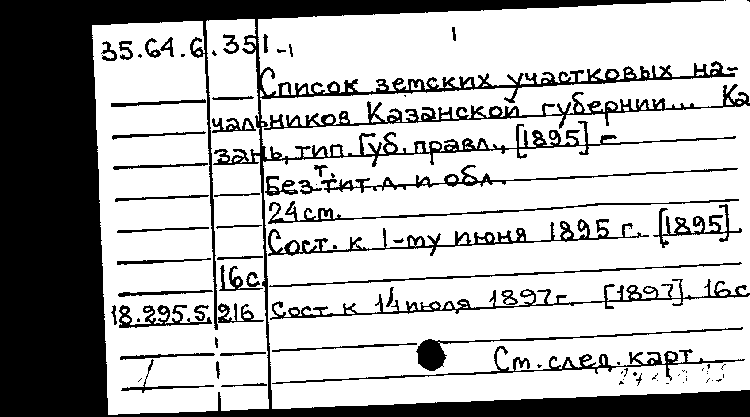 35.64.6.351-1 1
Список земских участковых на-
чальников Казанской губернии... Ка
зань, тип. Губ. правл., [1895] –
Без тит. л. и обл.
24 cm.
Сост. к 1-му июня 1895 г. [1895].
16 с.
18.295.5.216 Сост. к 14 июля 1897 г. [1897]. 16 с
См. след. карт.